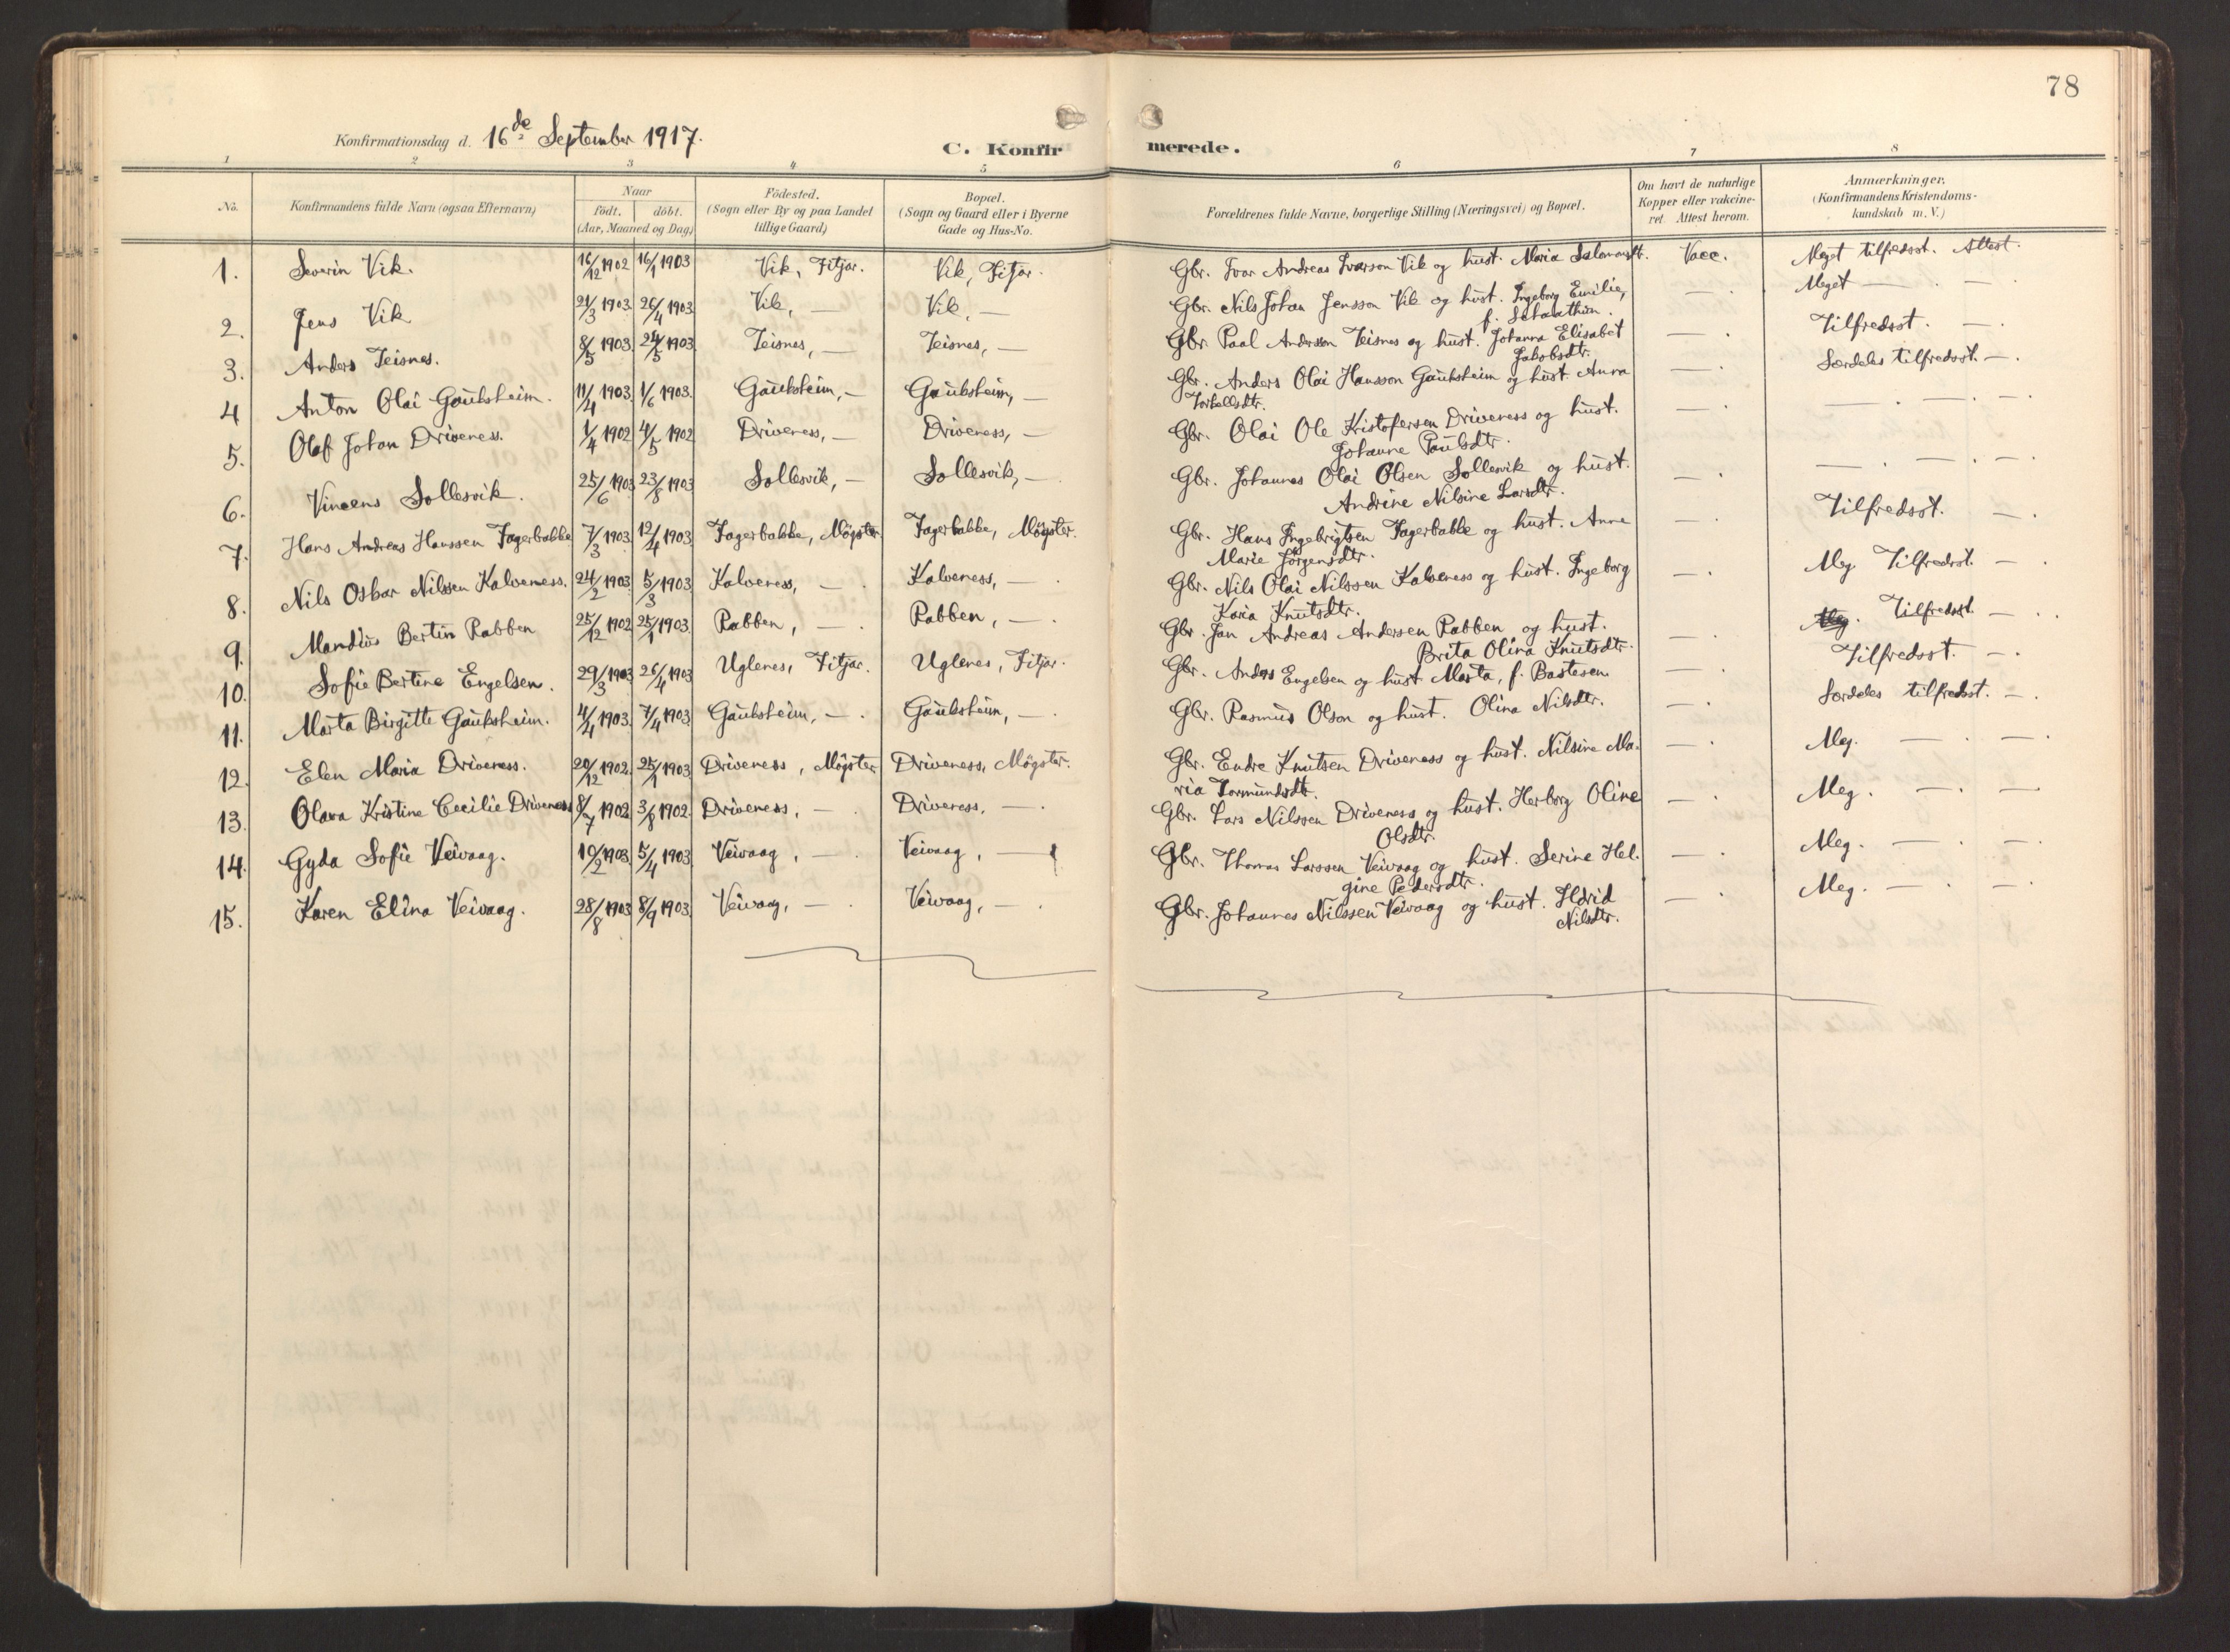 78
Konfirmationsdag d. 16de September 1917.
C. Konfirmerede.
1 2 3 4 5 6 7 8
No. Konfirmandens fulde Navn (ogsaa Efternavn) Naar födt. döbt. (Aar, Maaned og Dag) Födested. (Sogn eller By og paa Landet tillige Gaard) Bopæl. (Sogn og Gaard eller i Byerne Gade og Hus-No. Forældrenes fulde Navne, borgerlige Stilling (Næringsvei) og Bopæl. Om havt de naturlige Kopper eller vakcineret. Attest herom. Anmærkninger. (Konfirmandens Kristendomskundskab m. V.)
1. Severin Vik. 16/12 1902 16/1 1903 Vik, Fitjar. Vik, Fitjar. Gbr. Ivar Andreas Ivarson Vik og hust. Maria Salomonsdt. Vacc. Meget tilfredsst. Attest.
2. Jens Vik 21/3 1903 26/4 1903 Vik, — Vik, — Gbr. Nils Johan Jensson Vik og hust. Ingeborg Emilie, — . Meget — . — .
f.
3. Anders Teisnes. 8/5 1903. 24/5 1903 Teisnes, — Teisnes, — Gbr. Paal Anderssen Teisnes og hust. Johanna Elisabet — . Tilfredsst. — .
Jakobsdtr.
4 Anton Olai Gauksheim. 11/4 1903. 1/6 1903. Gauksheim, — Gauksheim, — Gbr. Anders Olai Hansson Gauksheim og hust. Anna — . Særdeles tilfredsst. — .
Torkellsdtr.
5. Olaf Johan Driveness. 1/4 1902 4/5 1902 Driveness, — Driveness, — Gbr. Olai Ole Kristofersen Driveness og hust. — . — . — . — .
Johanne Paulsdtr.
6. Vincens Sollesvik. 25/6 1903 23/8 1903 Sollesvik, — Sollesvik, — Gbr. Johannes Olai Olsen Sollesvik og hust. — . — . — . — .
Andrine Nilsine Larsdtr.
7. Hans Andreas Hanssen Fagerbakke 7/3 1903. 12/4 1903. Fagerbakke, Møgster. Fagerbakke, Møgster. Gbr. Hans Ingebrigtsen Fagerbakke og hust. Anne — . Tilfredsst. — .
Marie Jørgensdtr.
8. Nils Oskar Nilssen Kalveness. 24/2 1903 5/3 1903. Kalveness, — . Kalveness, — . Gbr. Nils Olai Nilssen Kalveness og hust. Ingeborg — . Meg. Tilfredsst. — .
Karia Knutsdtr.
9. Mandius Bertin Rabben 25/12 1902 25/1 1903. Rabben, — . Rabben, — . Gbr. Jan Andreas Andersen Rabben og hust. — . Meg. Tilfredsst. — .
Brita Olina Knutsdtr.
10. Sofie Bertine Engelsen. 29/3 1903 26/4 1903 Uglenes, Fitjar. Uglenes, Fitjar. Gbr. Anders Engelsen og hust. Marta, f. Bastesen — . Tilfredsst. — .
11. Marta Birgitte Gauksheim. 4/4 1903. 7/4 1903. Gauksheim, — . Gauksheim, — . Gbr. Rasmus Olson og hust. Olina Nilsdtr. — . Særdeles tilfredsst. — .
12. Elen Maria Driveness. 20/12 1902. 25/1 1903. Driveness, Møgster Driveness, Møgster. Gbr. Endre Knutsen Driveness og hust. Nilsine Ma- — . Meg. — . — .
ria Tormundsdt.
13. Olava Kristine Cecilie Driveness 8/7 1902. 3/8 1902. Driveness, — . Driveness, — . Gbr. Lars Nilssen Driveness og hust. Herborg Oline — . Meg. — . — .
Olsdtr.
14. Gyda Sofie Veivaag. 10/2 1903. 5/4 1903 Veivaag, — . Veivaag, — Gbr. Thomas Larssen Veivaag og hust. Serine Hel- — . Meg. — . — .
gine Pedersdtr.
15. Karen Elina Veivaag. 28/8 1903 8/9 1903. Veivaag, — . Veivaag, — . Gbr. Johannes Nilssen Veivaag og hust. Hdrid — . Meg. — . — .
Nilsdtr.